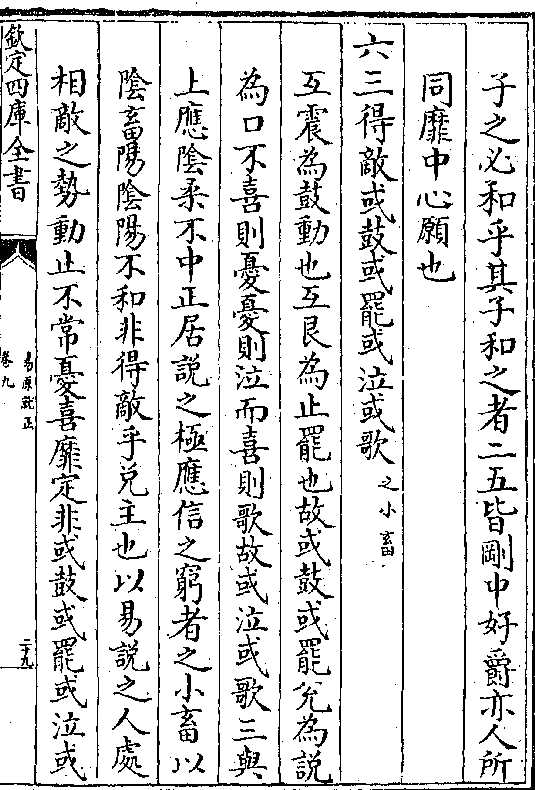 子之必和乎其子和之者二五皆剛中好爵亦人所
同靡中心願也
六三得敵或鼓或罷或泣或歌之小畜
互震為鼓動也互艮為止罷也故或鼓或罷兊為說
為口不喜則憂憂則泣而喜則歌故或泣或歌三與
上應陰柔不中正居說之極應信之窮者之小畜以
陰畜陽陰陽不和非得敵乎兊主也以易說之人處
相敵之勢動止不常憂喜靡定非或鼓或罷或泣或
欽定四庫全書
易原就正
卷九
二十九